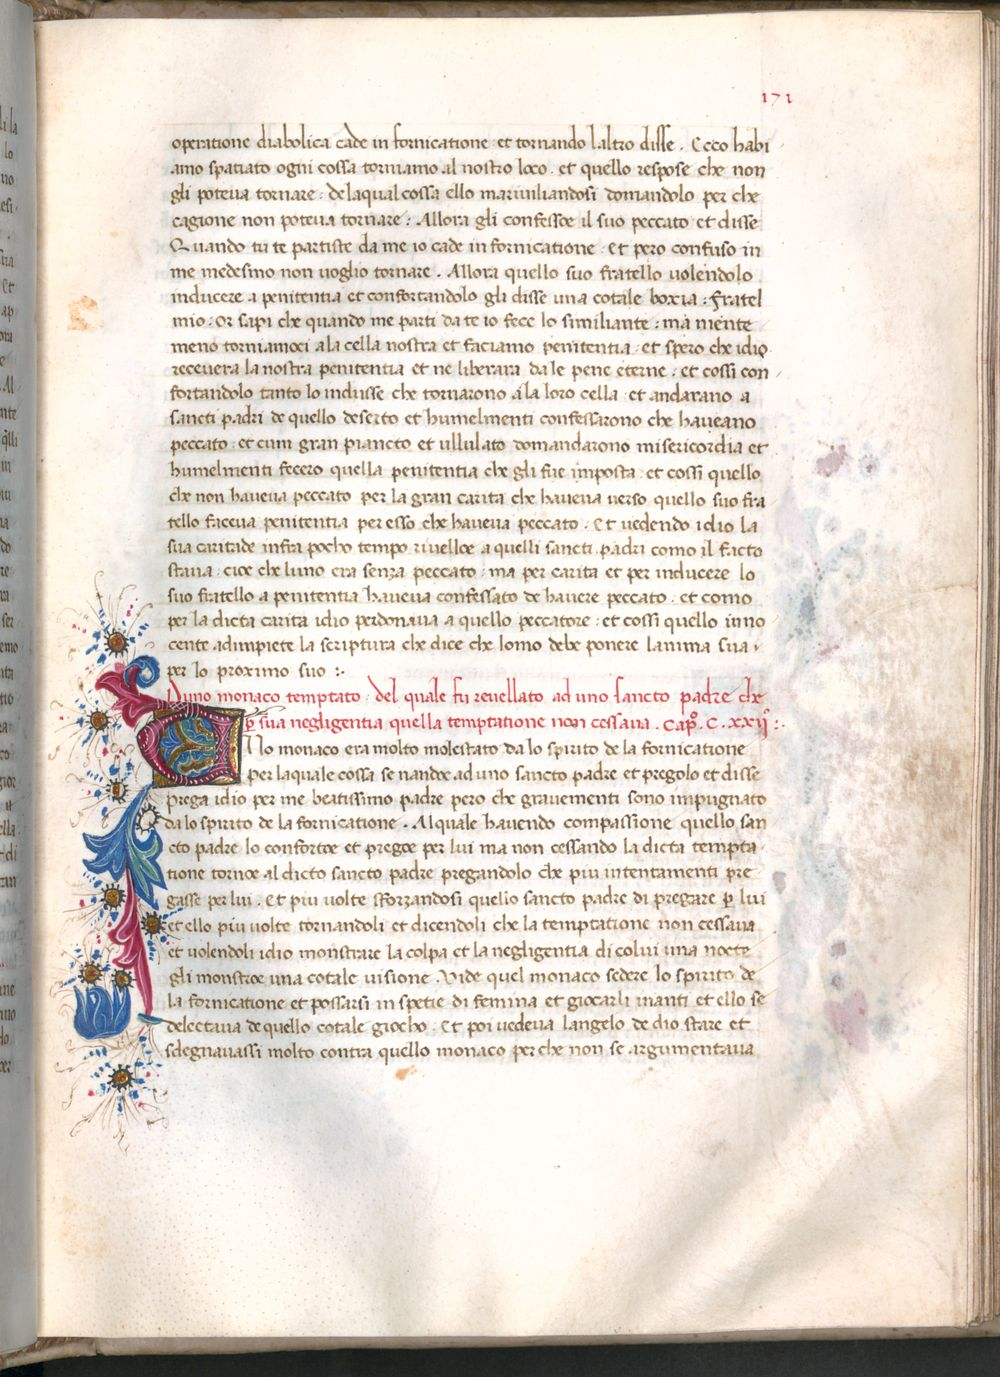 171
operatione diabolica cade in fornicatione et tornando laltro disse . Ecco habi
amo spatiato ogni cossa torniamo al nostro loco . et quello respose che non
gli poteua tornare : delaqual cossa ello marauiliandosi domandolo per che
cagione non poteua tornare : Allora gli confessoe il suo peccato et disse
Quando tu te partiste da me io cade in fornicatione . et pero confuso in
me medesmo non uoglio tornare . Allora quello suo fratello uolendolo
inducere a penitentia et confortandolo gli disse una cotale boxia : Fratel
mio : or sapi che quando me parti da te io fece lo similiante : ma niente
meno torniamoci ala cella nostra et faciamo penitentia . et spero che idio
receuera la nostra penitentia et ne liberara dale pene eterne : et cossi con
fortandolo tanto lo indusse che tornarono ala loro cella . et andarano a
sancti padri de quello deserto et humelmenti confessarono che haueano
peccato . et cum gran piancto et ullulato domandarono misericordia et
humelmenti fecero quella penitentia che gli fue imposta . et cossi quello
che non haueua peccato per la gran carita che haueua uerso quello suo fra
tello faceua penitentia per esso che haueua peccato . Et uedendo idio la
sua caritade infra pocho tempo riuelloe a quelli sancti padri como il facto
staua . cioe che luno era senza peccato : ma per carita et per inducere lo
suo fratello a penitentia haueua confessato de hauere peccato . et como
per la dicta carita idio perdonaua a quello peccatore : et cossi quello inno
cente adimpiete la scriptura che dice che lomo debe ponere lanima sua
per lo proximo suo :.
Duno monaco temptato . del quale fu reuellato ad uno sancto padre che
p̱ sua negligentia quella temptatione non cessaua . Cap̊. C.xxij̊ :.
UNo monaco era molto molestato da lo spirito de la fornicatione
per laquale cossa se nandoe ad uno sancto padre et pregolo et disse
prega idio per me beatissimo padre pero che grauementi sono impugnato
da lo spirito de la fornicatione . Al quale hauendo compassione quello san
cto padre lo confortoe et pregoe per lui ma non cessando la dicta tempta
tione tornoe al dicto sancto padre pregandolo che piu intentamenti pre
gasse per lui . Et piu uolte sforzandosi quello sancto padre di pregare p̱ lui
et ello piu uolte tornandoli et dicendoli che la temptatione non cessaua
et uolendoli idio monstrare la colpa et la negligentia di colui una nocte
gli monstroe una cotale uisione . Vide quel monaco sedere lo spirito de
la fornicatione et possarsi in spetie di femina et giocarli inanti et ello se
delectaua de quello cotale giocho . Et poi uedeua langelo de dio stare et
sdegnauassi molto contra quello monaco perche non se argumentaua